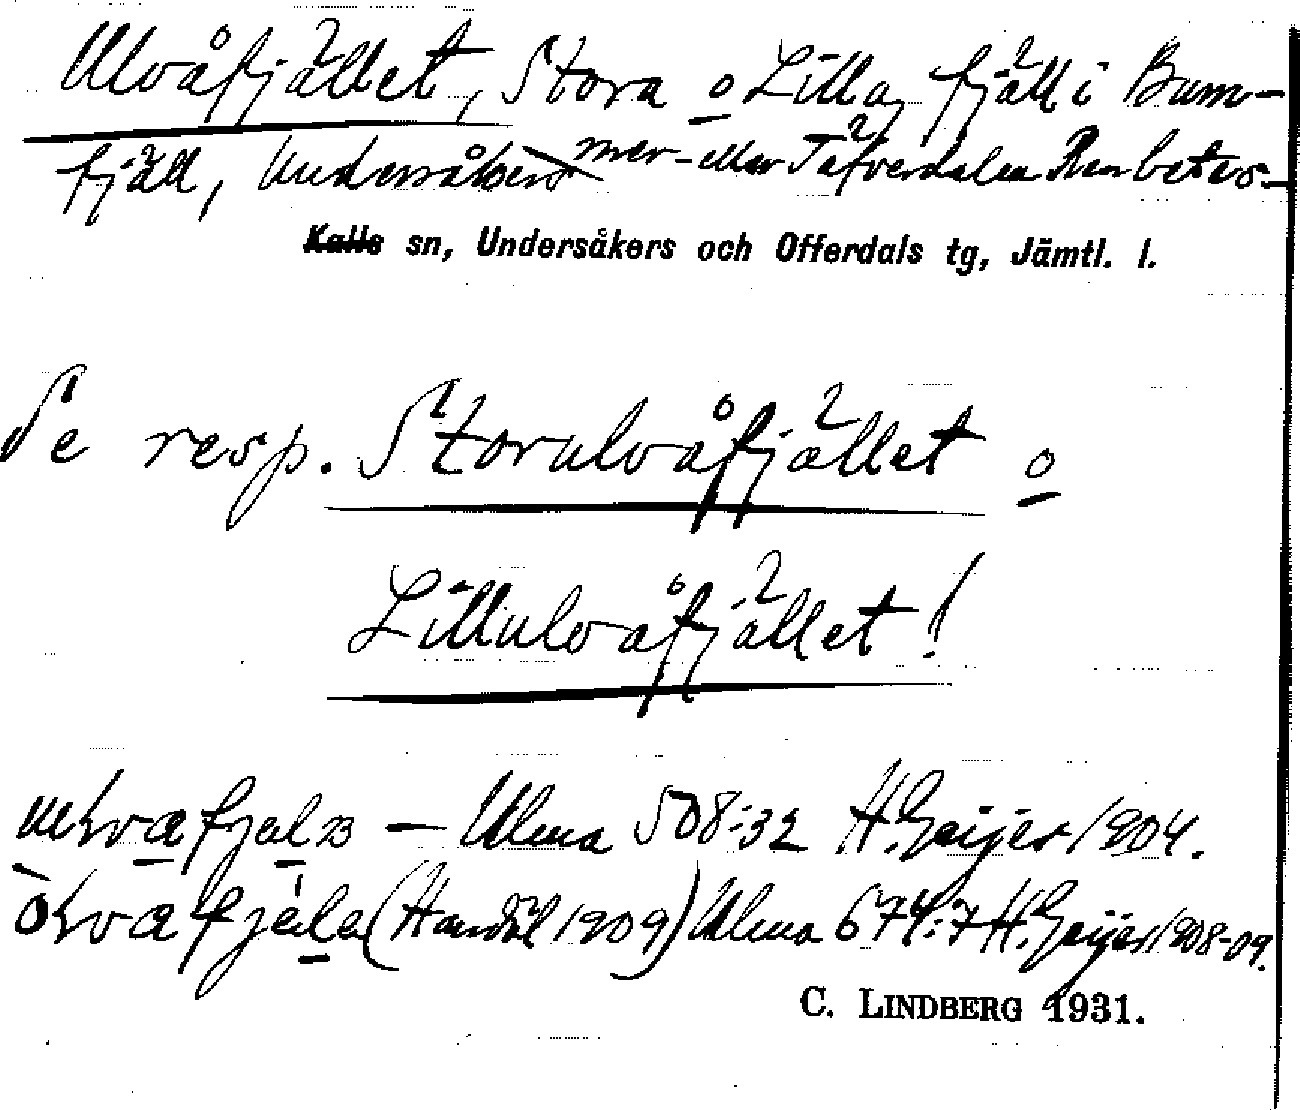 Ulvåfjället, Stora o Lilla, fjäll i
fjäll, Undersåkers mer- eller Tåfverdalen Renbetes-
Kalls sn, Undersåkers och Offerdals tg, Jämtl. l.
Se resp. Storulvåfjället o
Lillulvåfjället!
fjal - Ulma 508:32 H. Geijer 1904.
(Handöl 1909) Ulma 674:7 H. Geijer 1908-09.
C. LINDBERG 1931.